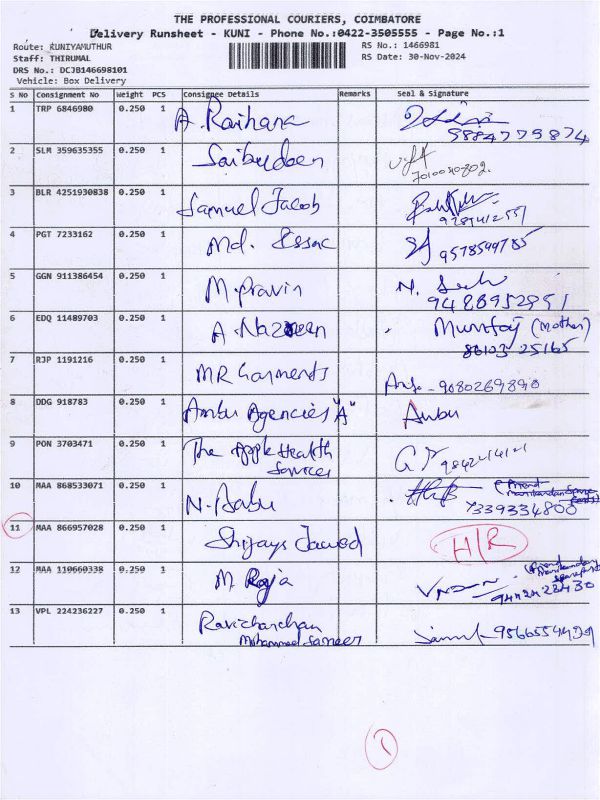 THE PROFESSIONAL COURIERS, COIMBATORE
Delivery Runsheet - KUNI - Phone No.:0422-3505555 - Page No.:1
Route: KUNIYAMUTHUR RS No.: 1466981
Staff: THIRUMAL RS Date: 30-Nov-2024
DRS No.: DCJB146698101
Vehicle: Box Delivery
S No Consignment No Weight PCS Consignee Details Remarks Seal & Signature
1 TRP 6846980 0.250 1 A. Raihana
9884779874
2 SLM 359635355 0.250 1 Saibudeen
7010040802.
3 BLR 4251930838 0.250 1 Samuel Jacob
4 PGT 7233162 0.250 1 Md. Essac 9578599785
5 GGN 911386454 0.250 1 M. Pravin N.
9488952851
6 EDQ 11489703 0.250 1 A. Nazreen Mumtaj (Mother)
86103 25165
7 RJP 1191216 0.250 1 MR Garments - 9080269890
8 DDG 918783 0.250 1 Anbu Agencies "A" Anbu
9 PON 3703471 0.250 1 The Apple Health
Services
10 MAA 868533071 0.250 1 N. Babu
7339334800
11 MAA 866957028 0.250 1 Shijays Jawed H/R
12 MAA 110660338 0.250 1 M. Raja
9442422430
13 VPL 224236227 0.250 1 Ravichandran
Mohammed Sameer
1